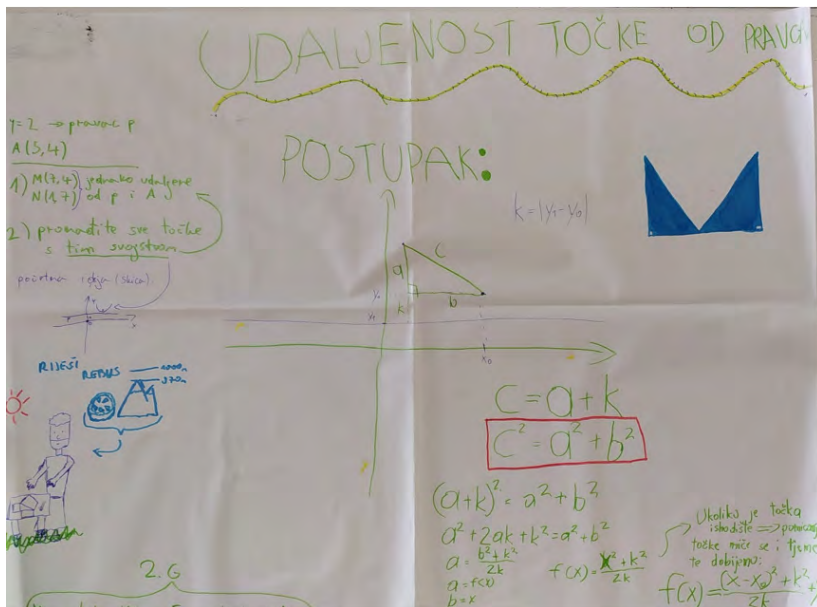 UDALJENOST TOČKE OD PRAVCA
y=2 → pravac p
A(5,4)
1) M(7,4) jednako udaljene
N(1,7) od p i A
2) pronađite sve točke
s tim svojstvom
početna ideja (skica)
POSTUPAK:
k=|y₁-y₀|
a
c
b
k
y₀
y₁
x₀
RIJEŠI REBUS
C=a+k
C²=a²+b²
(a+k)²=a²+b²
a²+2ak+k²=a²+b²
a=b²+k²/2k
a=f(x)
b=x
f(x)=x²+k²/2k
Ukoliko je točka
ishodište ⇒ pomicanjem
točke miče se i tjeme
te dobijemo:
f(x)=(x-x₀)²+k²/2k
2.G